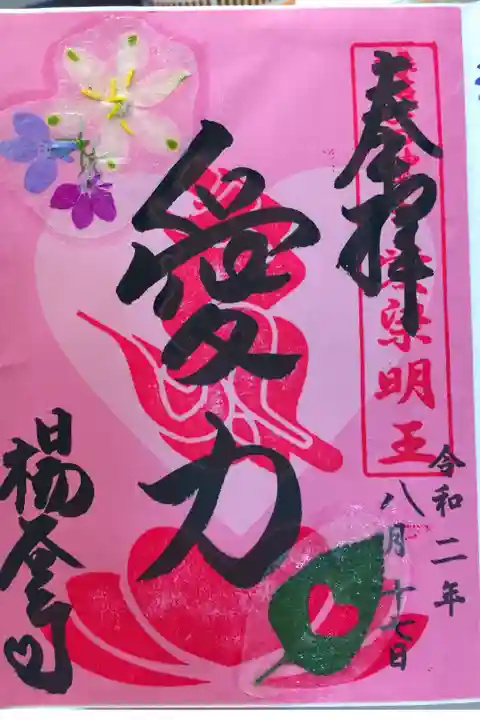 奉拝
染明王
愛力
令和二年
八月十七日
楊谷寺